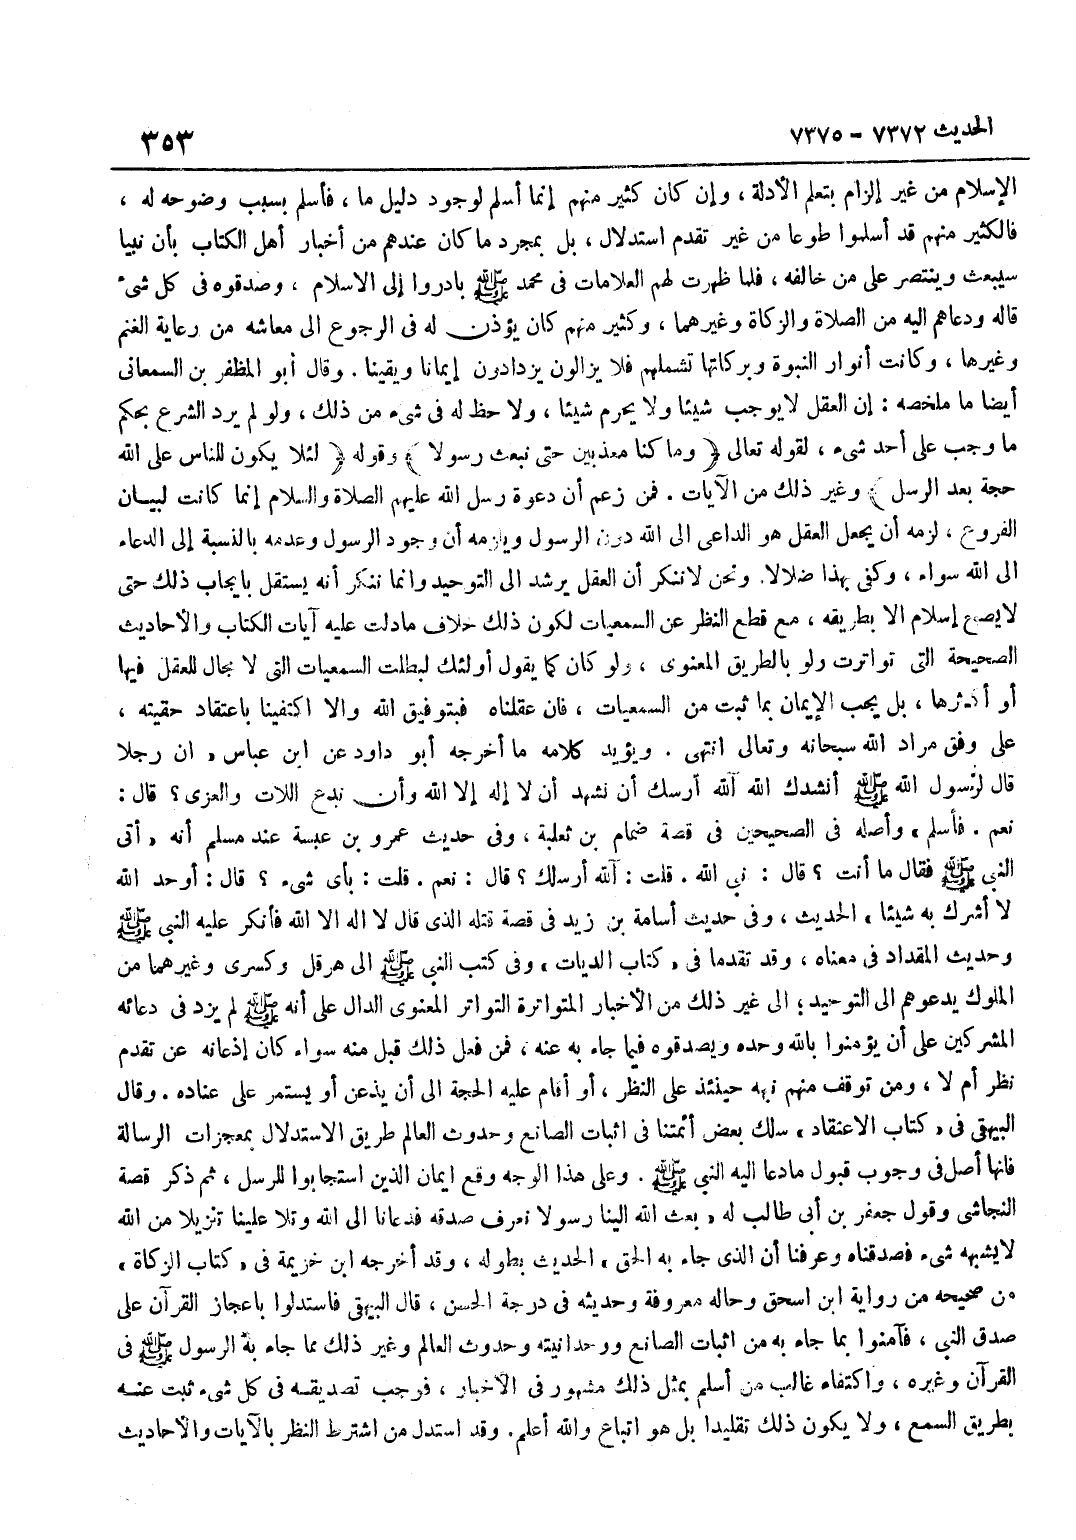 الحديث ٧٣٧٢ - ٧٣٧٥
٣٥٣
الإسلام من غير إلزام بتعلم الأدلة ، وإن كان كثير منهم إنما أسلم لوجود دليل ما ، فأسلم بسبب وضوحه له ،
فالكثير منهم قد أسلموا طوعا من غير تقدم استدلال ، بل بمجرد ما كان عندهم من أخبار أهل الكتاب بأن نبيا
سيبعث وينتصر على من خالفه ، فلما ظهرت لهم العلامات فى محمد ﷺ بادروا إلى الاسلام ، وصدقوه فى كل شىء
قاله ودعاهم اليه من الصلاة والزكاة وغيرهما ، وكثير منهم كان يؤذن له فى الرجوع الى معاشه من رعاية الغنم
وغيرها ، وكانت أنوار النبوة وبركاتها تشملهم فلا يزالون يزدادون إيمانا ويقينا . وقال أبو المظفر بن السمعانى
أيضا ما ملخصه : إن العقل لا يوجب شيئا ولا يحرم شيئا ، ولا حظ له فى شىء من ذلك ، ولو لم يرد الشرع بحكم
ما وجب على أحد شىء ، لقوله تعالى ﴿ وما كنا معذبين حتى نبعث رسولا ﴾ وقوله ﴿ لئلا يكون للناس على الله
حجة بعد الرسل ﴾ وغير ذلك من الآيات . فمن زعم أن دعوة رسل الله عليهم الصلاة والسلام إنما كانت لبيان
الفروع ، لزمه أن يجعل العقل هو الداعى الى الله دون الرسول ويلزمه أن وجود الرسول وعدمه بالنسبة إلى الدعاء
الى الله سواء ، وكفى بهذا ضلالا. ونحن لاننكر أن العقل يرشد الى التوحيد وانما ننكر أنه يستقل بايجاب ذلك حتى
لايصح إسلام الا بطريقه ، مع قطع النظر عن السمعيات لكون ذلك خلاف مادلت عليه آيات الكتاب والأحاديث
الصحيحة التى تواترت ولو بالطريق المعنوى ، ولو كان كما يقول أولئك لبطلت السمعيات التى لا مجال للعقل فيها
أو أكثرها ، بل يجب الإيمان بما ثبت من السمعيات ، فان عقلناه فبتوفيق الله والا اكتفينا باعتقاد حقيته ،
على وفق مراد الله سبحانه وتعالى انتهى . ويؤيد كلامه ما أخرجه أبو داود عن ابن عباس « ان رجلا
قال لرسول الله ﷺ أنشدك الله آلله أرسلك أن نشهد أن لا إله إلا الله وأن ندع اللات والعزى ؟ قال :
نعم . فأسلم » وأصله فى الصحيحين فى قصة ضمام بن ثعلبة ، وفى حديث عمرو بن عبسة عند مسلم أنه « أتى
النبى ﷺ فقال ما أنت ؟ قال : نبى الله . قلت : آلله أرسلك ؟ قال : نعم . قلت : بأى شىء ؟ قال : أوحد الله
لا أشرك به شيئا » الحديث ، وفى حديث أسامة بن زيد فى قصة قتله الذى قال لا اله الا الله فأنكر عليه النبى ﷺ
وحديث المقداد فى معناه ، وقد تقدما فى « كتاب الديات » وفى كتب النبى ﷺ الى هرقل وكسرى وغيرهما من
الملوك يدعوهم الى التوحيد؛ الى غير ذلك من الأخبار المتواترة التواتر المعنوى الدال على أنه ﷺ لم يزد فى دعائه
المشركين على أن يؤمنوا بالله وحده ويصدقوه فيما جاء به عنه ، فمن فعل ذلك قبل منه سواء كان إذعانه عن تقدم
نظر أم لا ، ومن توقف منهم نبهه حينئذ على النظر ، أو أقام عليه الحجة الى أن يذعن أو يستمر على عناده . وقال
البيهقى فى « كتاب الاعتقاد » سلك بعض أئمتنا فى اثبات الصانع وحدوث العالم طريق الاستدلال بمعجزات الرسالة
فانها أصل فى وجوب قبول مادعا اليه النبى ﷺ . وعلى هذا الوجه وقع ايمان الذين استجابوا للرسل ، ثم ذكر قصة
النجاشى وقول جعفر بن أبى طالب له « بعث الله الينا رسولا نعرف صدقه فدعانا الى الله وتلا علينا تنزيلا من الله
لايشبهه شىء فصدقناه وعرفنا أن الذى جاء به الحق » الحديث بطوله ، وقد أخرجه ابن خزيمة فى « كتاب الزكاة »
من صحيحه من رواية ابن اسحق وحاله معروفة وحديثه فى درجة الحسن ، قال البيهقى فاستدلوا باعجاز القرآن على
صدق النبى ، فآمنوا بما جاء به من اثبات الصانع ووحدانيته وحدوث العالم وغير ذلك مما جاء به الرسول ﷺ فى
القرآن وغيره ، واكتفاء غالب من أسلم بمثل ذلك مشهور فى الأخبار ، فوجب تصديقه فى كل شىء ثبت عنه
بطريق السمع ، ولا يكون ذلك تقليدا بل هو اتباع والله أعلم. وقد استدل من اشترط النظر بالآيات والأحاديث